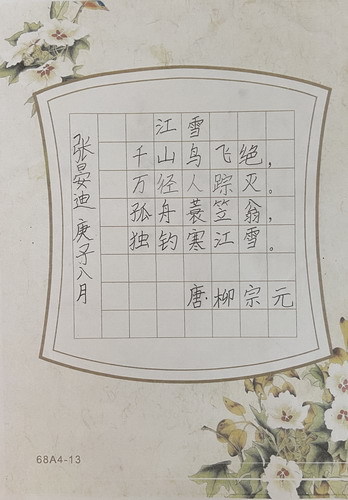 江雪
千山鸟飞绝，
万径人踪灭。
孤舟蓑笠翁，
独钓寒江雪。
唐·柳宗元
张晏迪 庚子八月
68A4-13